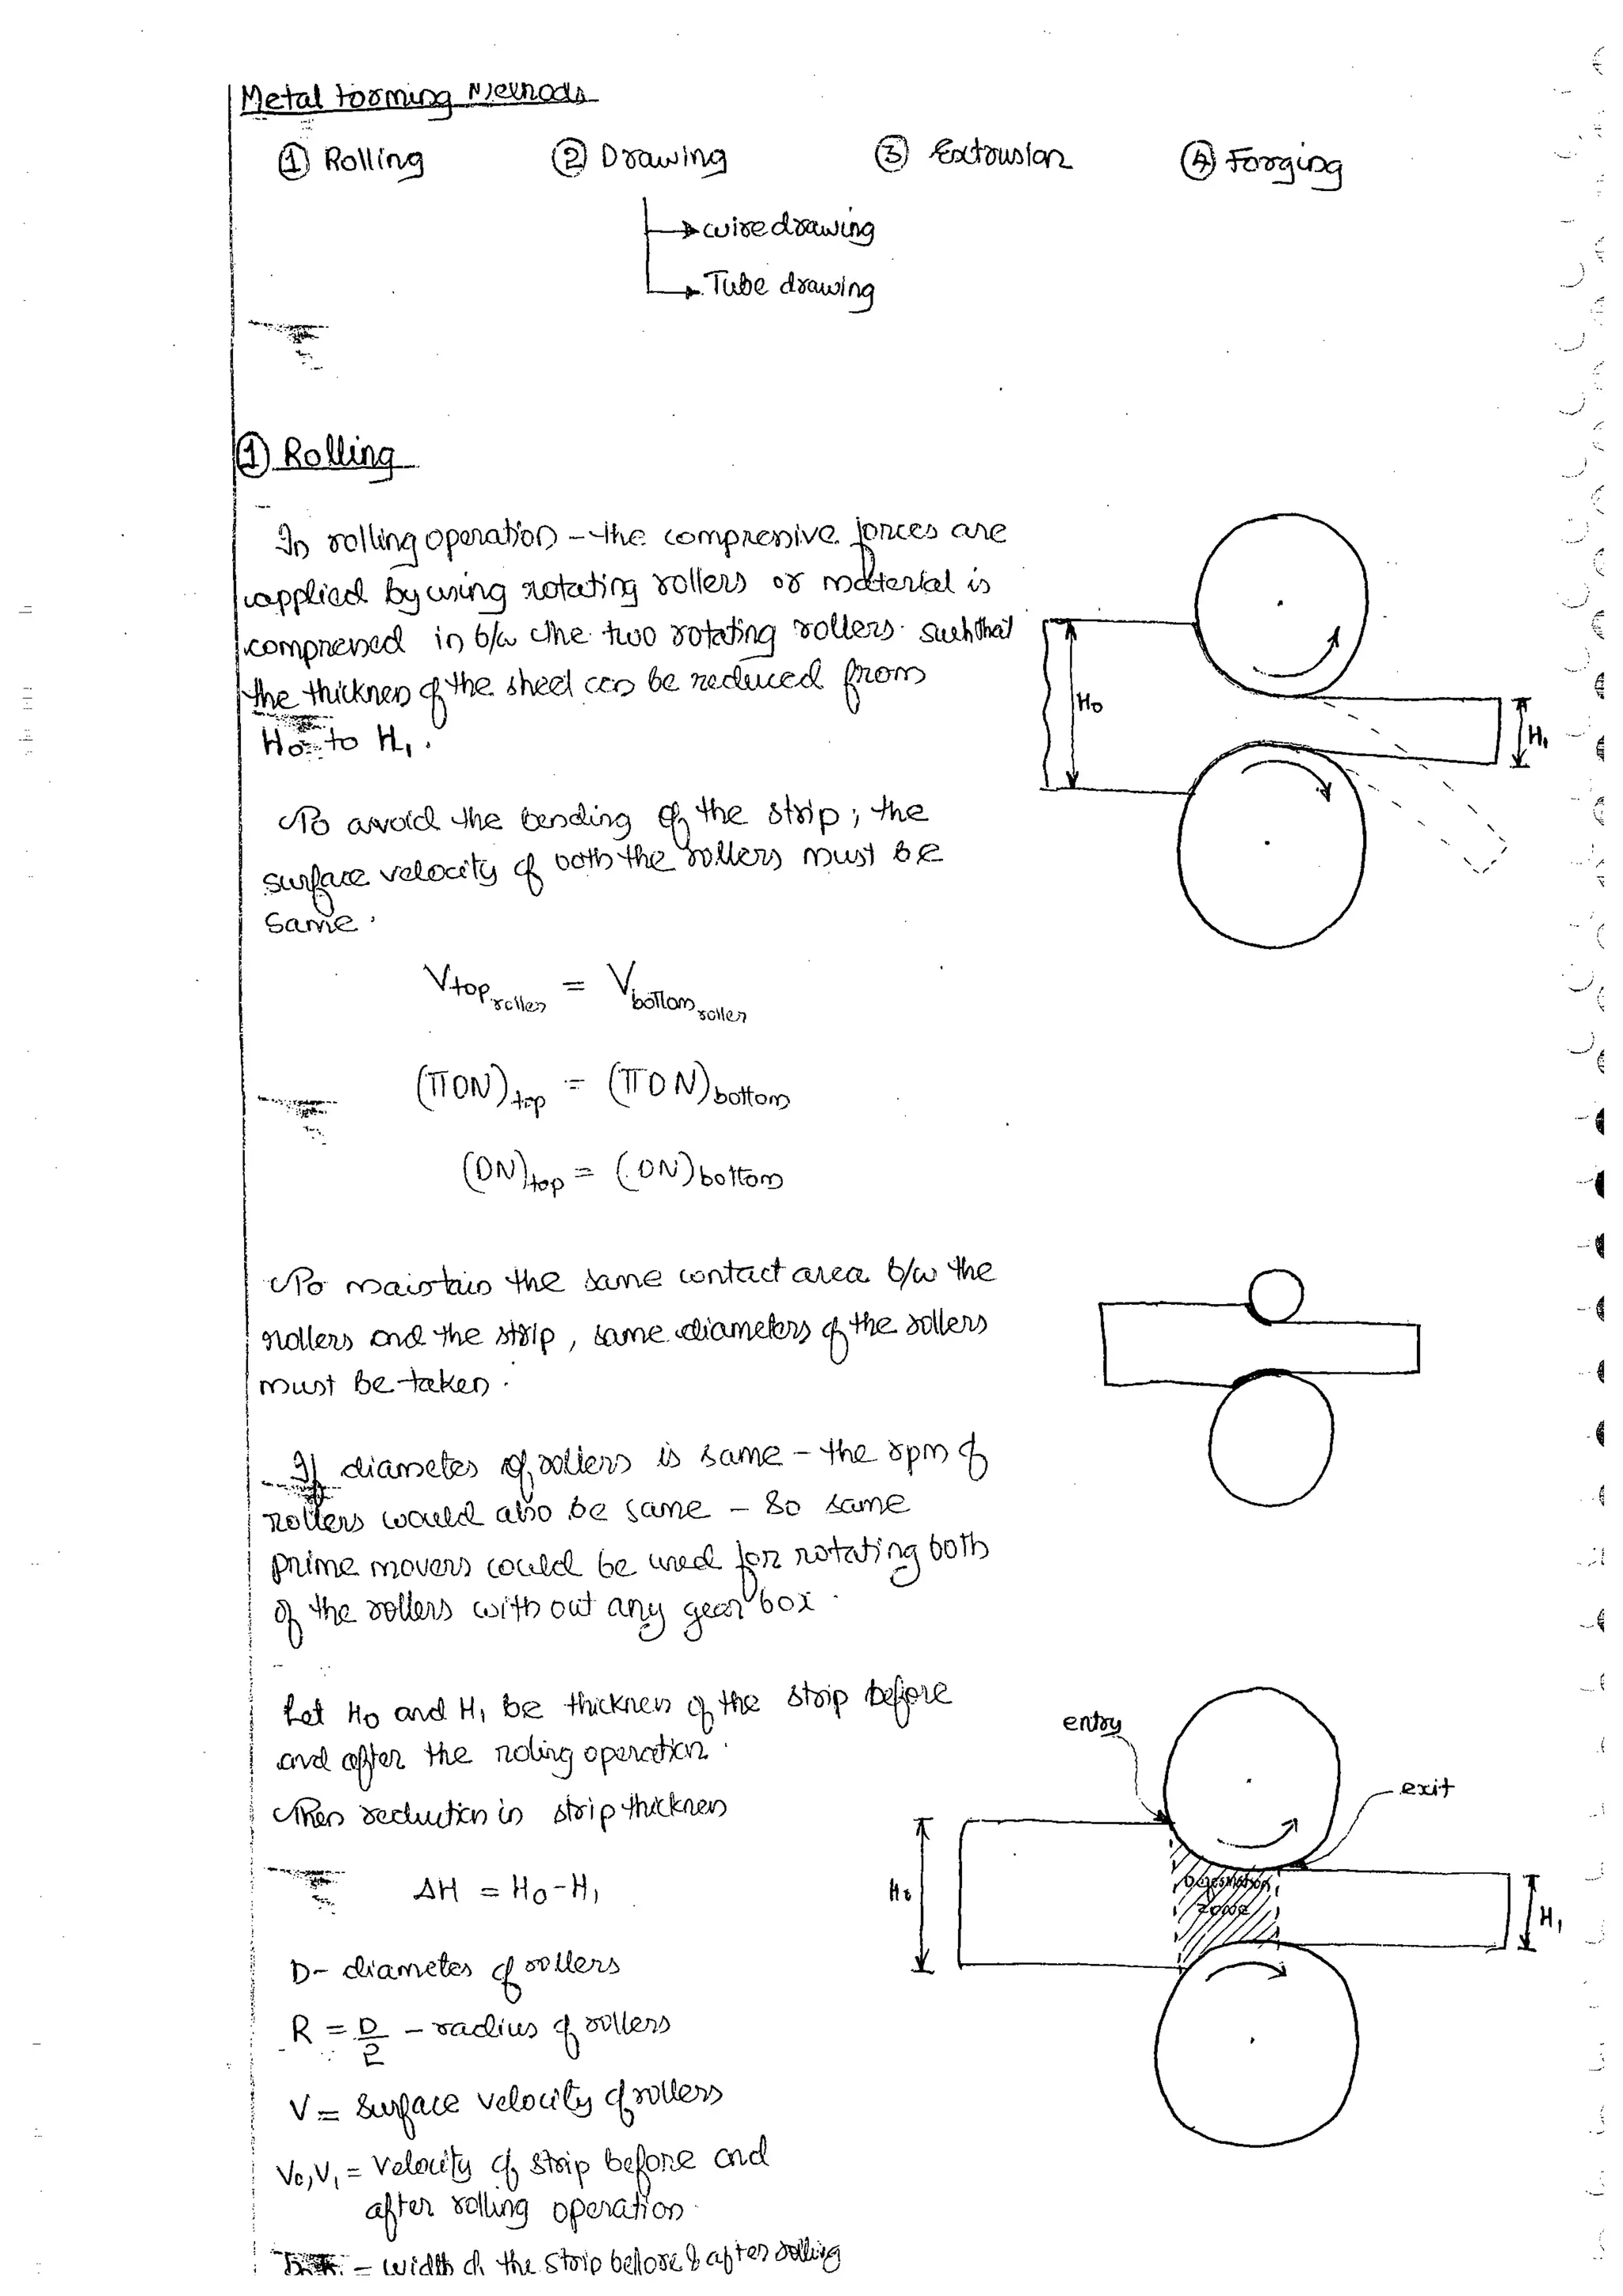 Metal forming Methods
① Rolling ② Drawing ③ Extrusion ④ Forging
wire drawing
Tube drawing
① Rolling
In rolling operation - the compressive forces are
applied by using rotating rollers or material is
compressed in b/w the two rotating rollers such that
the thickness of the sheet can be reduced from
H0 to H1.
H0
H1
To avoid the bending of the strip; the
surface velocity of both the rollers must be
same.
Vtop roller = Vbottom roller
(πDN)top = (πDN)bottom
(DN)top = (DN)bottom
To maintain the same contact area b/w the
rollers and the strip, same diameters of the rollers
must be taken.
If diameter of rollers is same - the rpm of
rollers would also be same - So same
prime movers could be used for rotating both
of the rollers without any gear box.
Let H0 and H1 be thickness of the strip before
and after the roling operation.
Then reduction in strip thickness
ΔH = H0-H1
entry
exit
H0
Deformation
zone
H1
D- diameter of rollers
R = D/2 - radius of rollers
V = Surface velocity of rollers
V0,V1 = Velocity of strip before and
after rolling operation.
- width of the strip before & after rolling